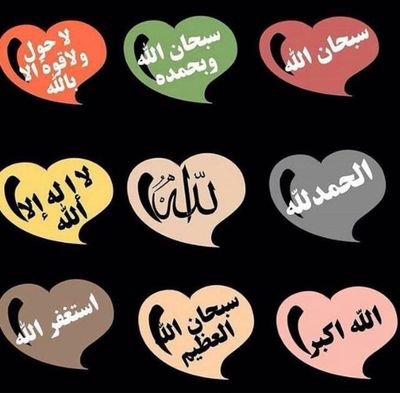 سبحان الله
سبحان الله
وبحمده
لا حول
ولا قوة الا
بالله
الحمد لله
الله
لا إله إلا
الله
الله اكبر
سبحان الله
العظيم
استغفر الله